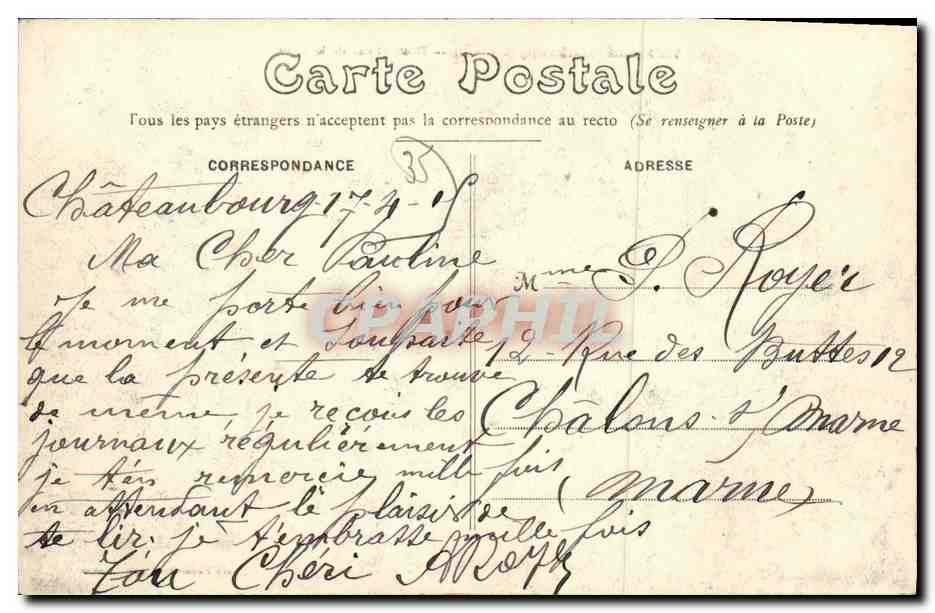 Carte Postale
Tous les pays étrangers n'acceptent pas la correspondance au recto (Se renseigner à la Poste)
CORRESPONDANCE
35
Châteaubourg 17-4-15
Ma Cher Pauline
Je me porte bien pour
le moment et Souhaite
que la présente te trouve
de même je reçois les
journaux régulièrement
je t'en remercie mille fois
en attendant le plaisir de
te lir je t'embrasse mille fois
Ton Chéri A Royer
ADRESSE
Mme P. Royer
12 - Rue des Buttes 12
Châlons s/ Marne
(Marne)
CPAPHIL